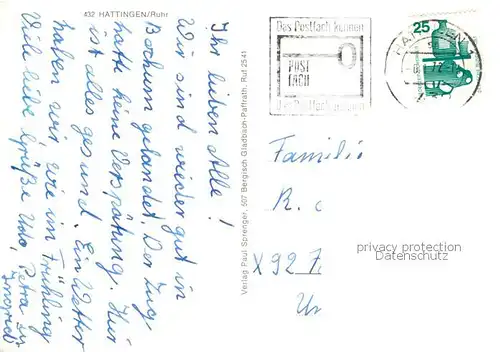 432 HATTINGEN/Ruhr
Ihr lieben Alle!
Wir sind wieder gut in
Bochum gelandet. Der Zug
hatte keine Verspätung. Hier
ist alles gesund. Ein Wetter
haben wir, wie im Frühling
Viele liebe Grüße Udo, Petra
Ingrid
Verlag Paul Sprenger, 507 Bergisch Gladbach-Paffrath, Ruf 2541
Das Postfach kennen
POST
FACH
das Postfach nutzen
25
Familie
R. c
privacy protection
Datenschutz
X 92